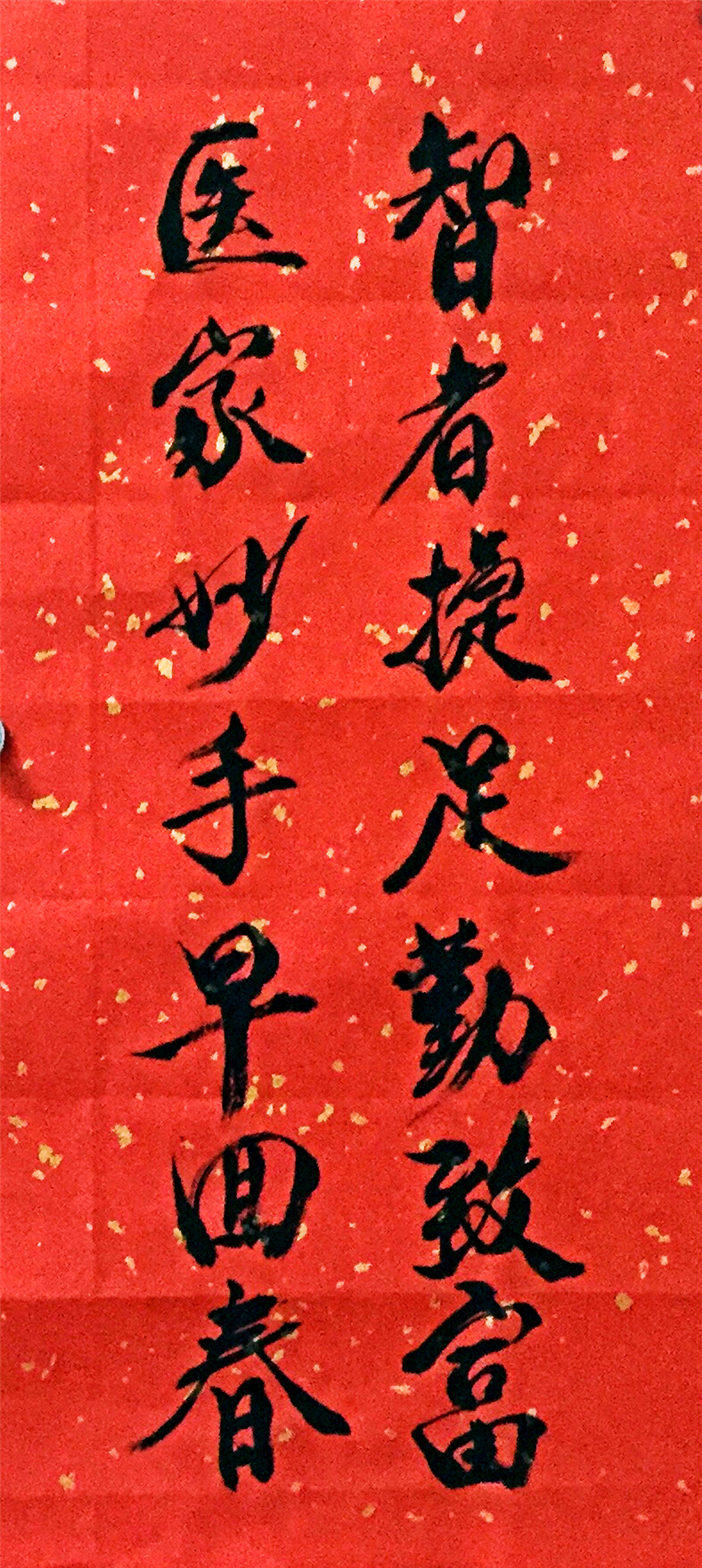 智者捷足勤致富
医家妙手早回春